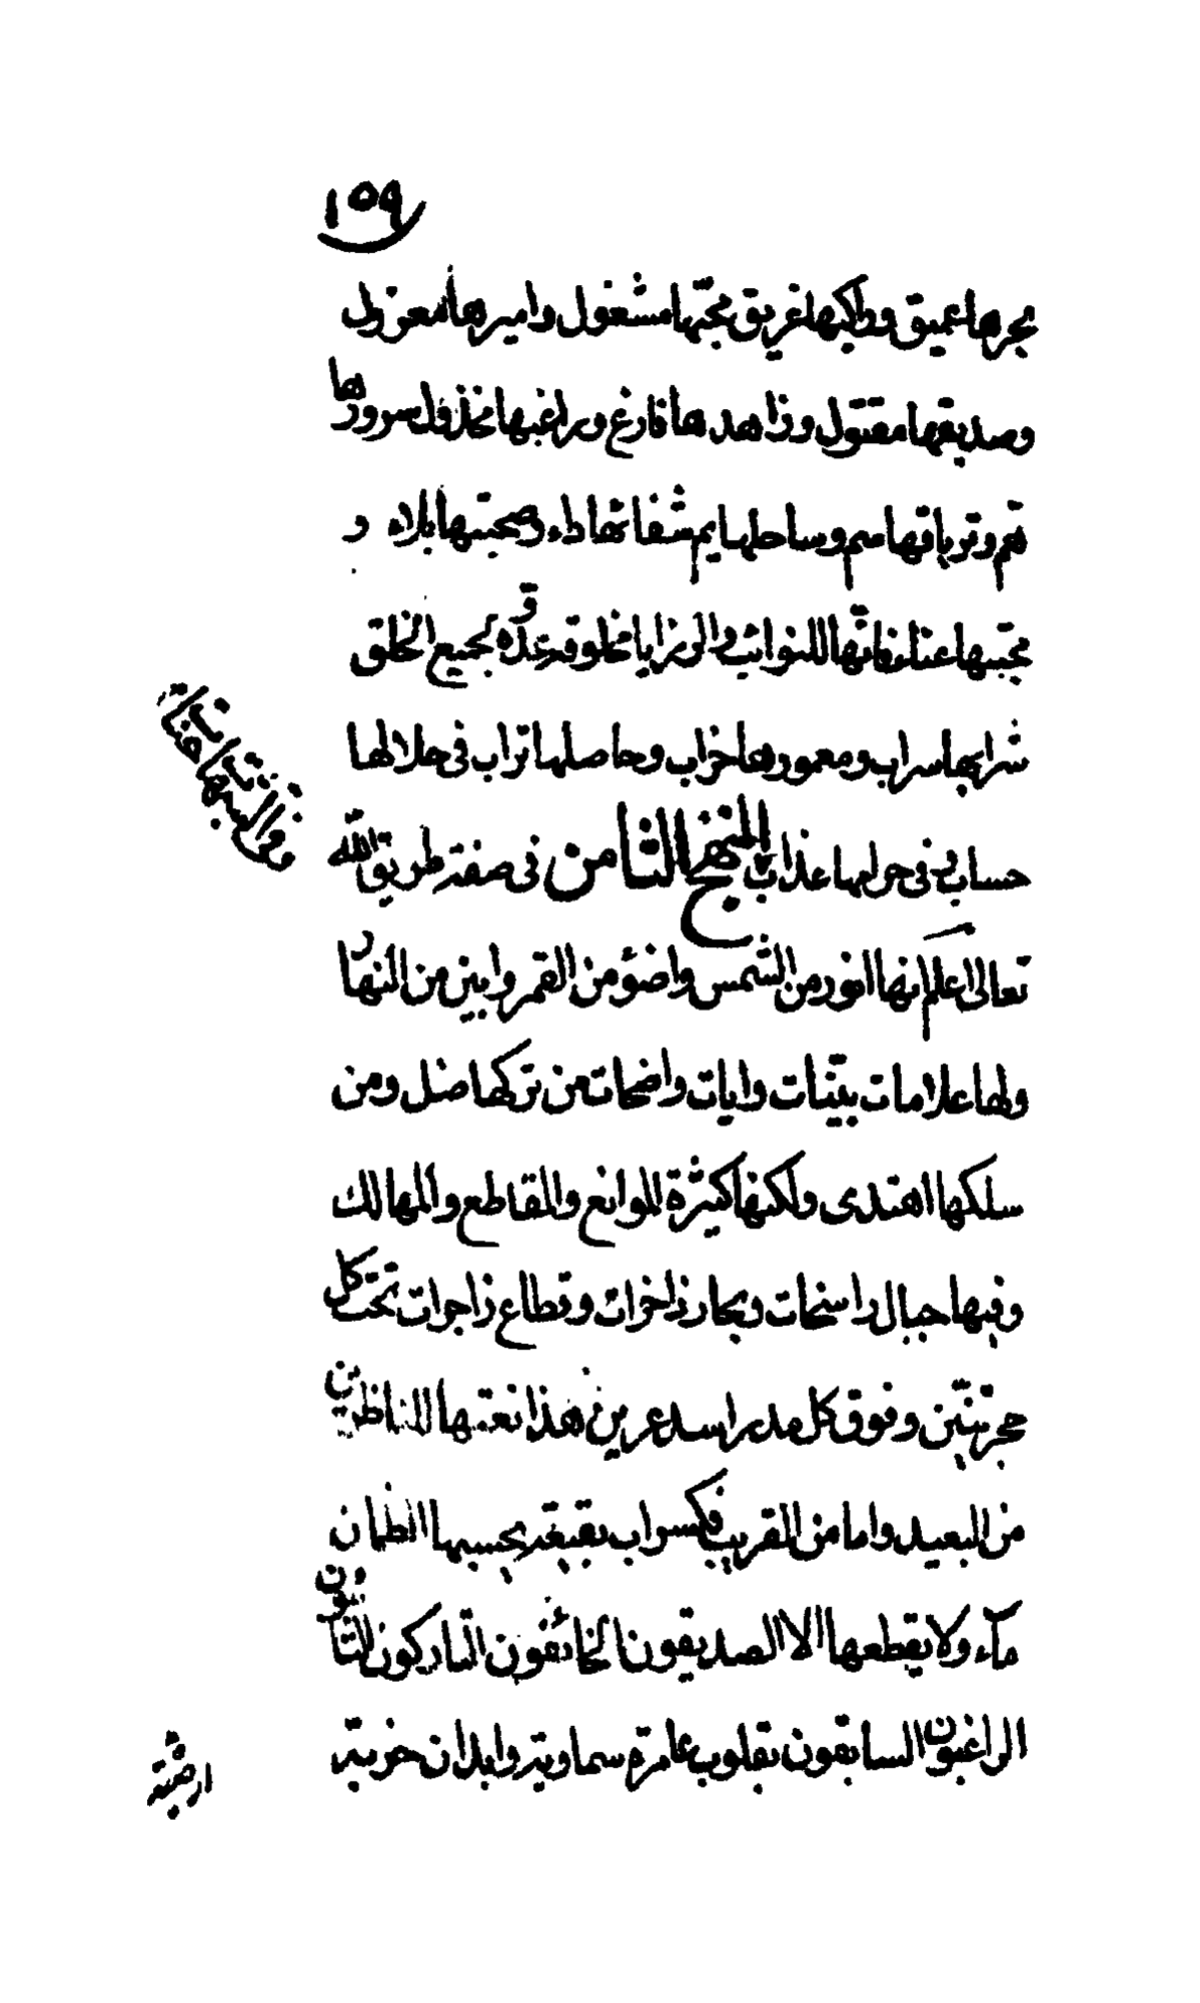 ١٥٩
بحرها عميق وراكبها غريق محبّها مشغول واميرها معزول
وصديقها مقتول وزاهدها فارغ وراغبها مخذول سرورها
هم وترياقها سم وساحلها يم شفائها داء وصحبتها بلاء و
محبتها عناء فانّها للنوائب والرزايا مخلوقة وعدّة لجميع الخلق
شرابها سراب ومعمورها خراب وحاصلها تراب في حلالها
حساب وفي حرامها عذاب المنهج الثامن في صفة طريق الله
تعالى اعلم انها انور من الشمس واضؤ من القمر وابين من النهار
ولها علامات بيّنات وايات واضحات من تركها ضل ومن
سلكها اهتدى ولكنها كثيرة الموانع والمقاطع والمهالك
وفيها جبال راسخات وبحار زاخرات وقطاع زاجرات تحت كل
حجر تنّين وفوق كل مدر اسد عرين هذا نعتها للناظرين
من البعيد واما من القريب فكسراب بقيعة يحسبها الظمان
مآء ولا يقطعها الا الصديقون الخائفون التاركون التائبون
الراغبون السابقون بقلوب عامرة سماوية وابدان خربة
ارضية